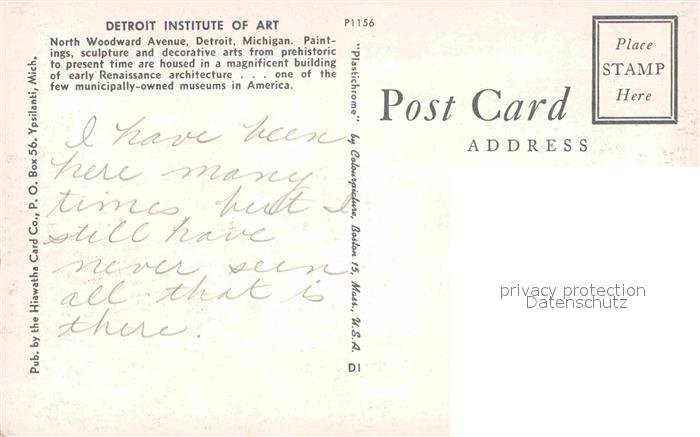 DETROIT INSTITUTE OF ART
North Woodward Avenue, Detroit, Michigan. Paint-
ings, sculpture and decorative arts from prehistoric
to present time are housed in a magnificent building
of early Renaissance architecture . . . one of the
few municipally-owned museums in America.
I have been
here many
times but I
still have
never seen
all that is
there.
Pub. by the Hiawatha Card Co., P. O. Box 56, Ypsilanti, Mich.
P1156
"Plastichrome" by Colourpicture, Boston 15, Mass., U.S.A.
D1
Post Card
ADDRESS
Place
STAMP
Here
privacy protection
Datenschutz